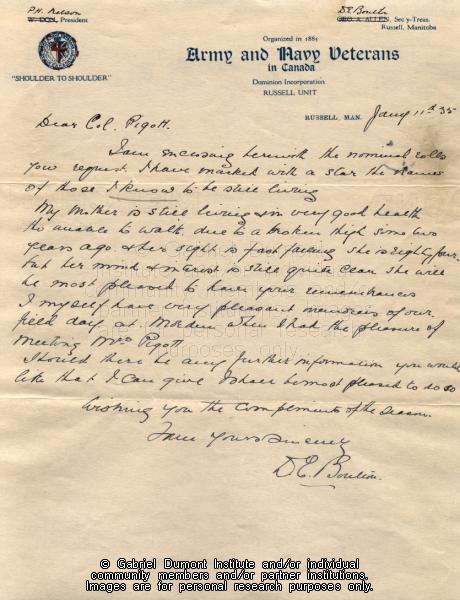 P.H. Nelson
W. DON, President
D.E. Boulton
GEO. A. ALLEN, Sec'y-Treas.
Russell, Manitoba
Organized in 1885
Army and Navy Veterans
in Canada
"SHOULDER TO SHOULDER"
Dominion Incorporation
RUSSELL UNIT
RUSSELL, MAN. Jany 11th 35
Dear Col. Pigott.
I am enclosing herewith the nominal rolls
you request. I have marked with a star the names
of those I know to be still living
My Mother is still living & in very good health
tho unable to walk due to a broken thigh some two
years ago. & her sight is fast failing she is eighty four.
but her mind & interest is still quite clear she will
be most pleased to have your remembrances
I myself have very pleasant memories of our
field day at Morden when I had the pleasure of
meeting Mrs Pigott
Should there be any further information you would
like that I can give I shall be most pleased to do so
Wishing you the compliments of the season.
I am Yours Sincerely
D.E. Boulton.
© Gabriel Dumont Institute and/or individual
community members and/or partner institutions.
Images are for personal research purposes only.